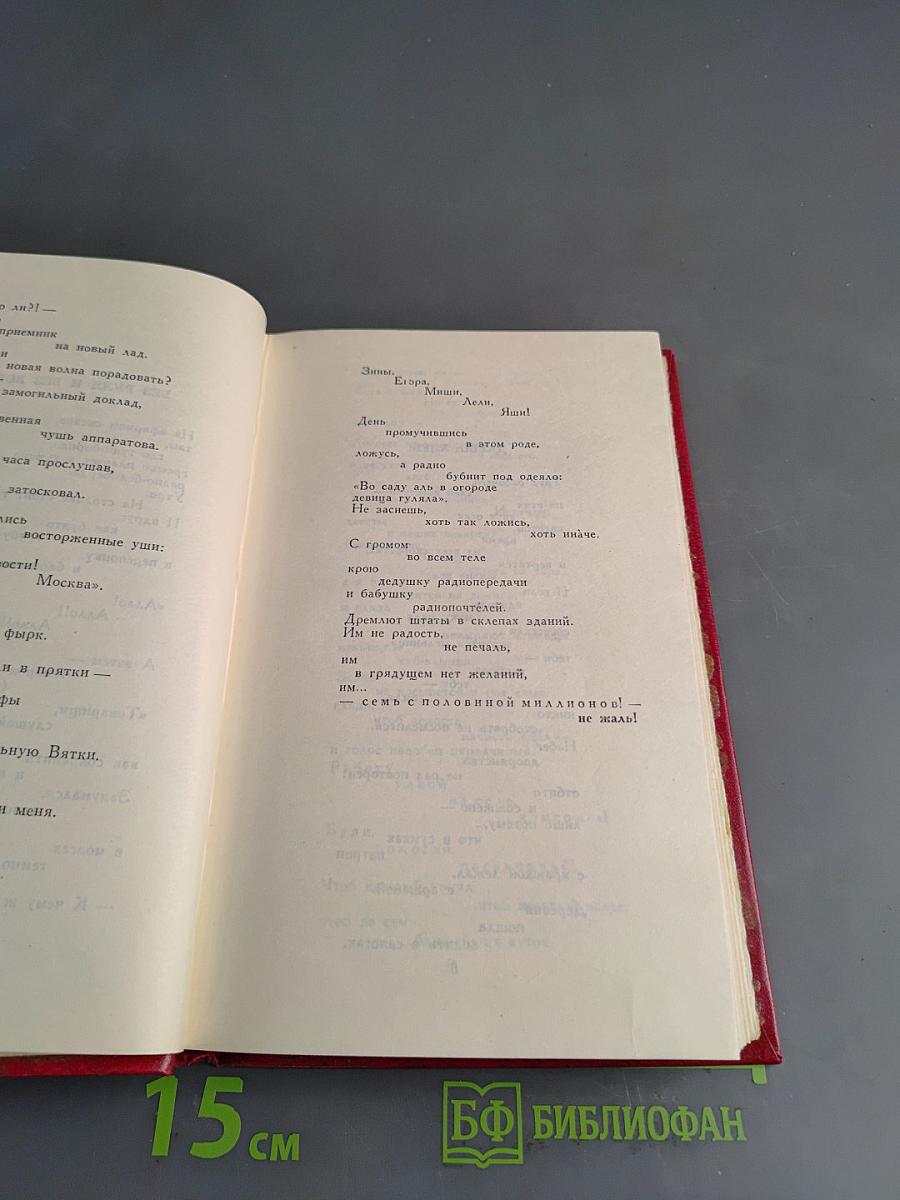 ли?! —
приемник
на новый лад.
и
новая волна порадовать?
замогильный доклад,
венная
чушь аппаратова.
часа прослушав,
затосковал.
лись
восторженные уши:
вости!
Москва».
фырк.
и в прятки —
фы
льную Вятки.
и меня.
Зины,
Егора,
Миши,
Лели,
Яши!
День
промучившись
в этом роде,
ложусь,
а радио
бубнит под одеяло:
«Во саду аль в огороде
девица гуляла».
Не заснешь,
хоть так ложись,
хоть ина̀че.
С громом
во всем теле
крою
дедушку радиопередачи
и бабушку
радиопочте́лей.
Дремлют штаты в склепах зданий.
Им не радость,
не печаль,
им
в грядущем нет желаний,
им...
— семь с половиной миллионов! —
не жаль!
15 см
БФ БИБЛИОФАН